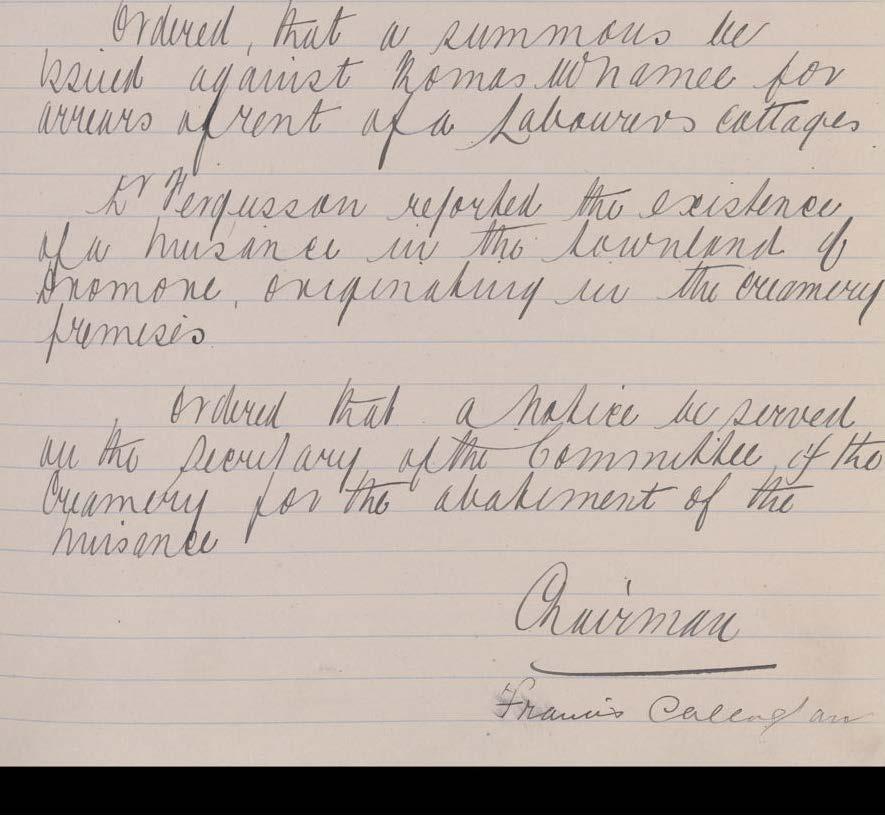 Ordered, that a summons be
issued against Thomas McNamee for
arrears of rent of a Labourers cottages
Dr Fergusson reported the existence
of a nuisance in the townland of
Dromore, originating in the creamery
premises
Ordered that a notice be served
on the secretary of the Committee of the
Creamery for the abatement of the
nuisance
Chairman
Francis Callaghan